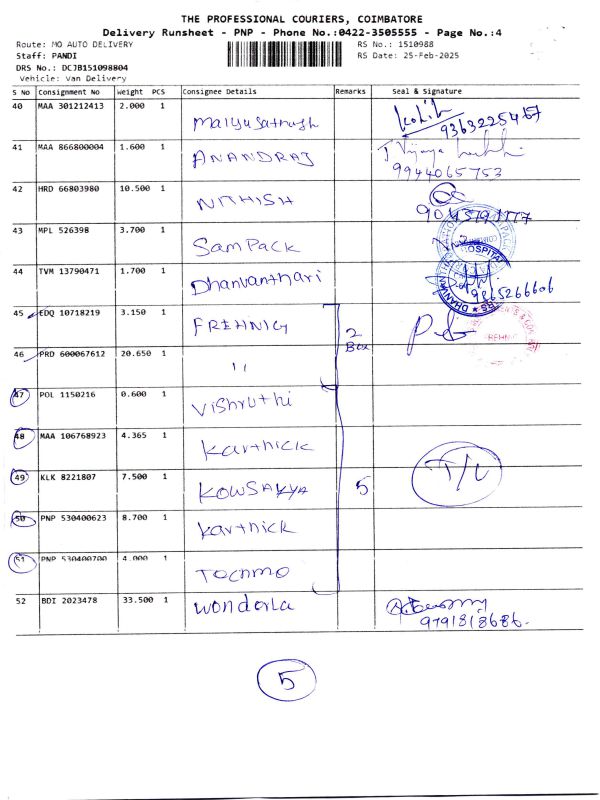 THE PROFESSIONAL COURIERS, COIMBATORE
Delivery Runsheet - PNP - Phone No.:0422-3505555 - Page No.:4
Route: MO AUTO DELIVERY RS No.: 1510988
Staff: PANDI RS Date: 25-Feb-2025
DRS No.: DCJB151098804
Vehicle: Van Delivery
S No Consignment No Weight PCS Consignee Details Remarks Seal & Signature
40 MAA 301212413 2.000 1
9363225467
41 MAA 866800004 1.600 1 ANANDRAJ J Vijaya
9944065753
42 HRD 66803980 10.500 1 NITHISH
43 MPL 526398 3.700 1 SamPack
44 TVM 13790471 1.700 1 Dhanvanthari HOSPITAL
9865266606
45 EDQ 10718219 3.150 1 FREHNIG 2
Box
46 PRD 600067612 20.650 1 "
47 POL 1150216 0.600 1 Vishruthi
48 MAA 106768923 4.365 1 Karthick
49 KLK 8221807 7.500 1 KOWSALYA 5 T/L
50 PNP 530400623 8.700 1 Karthick
51 PNP 530400700 4.000 1
52 BDI 2023478 33.500 1 Wonderla
9791818686.
5